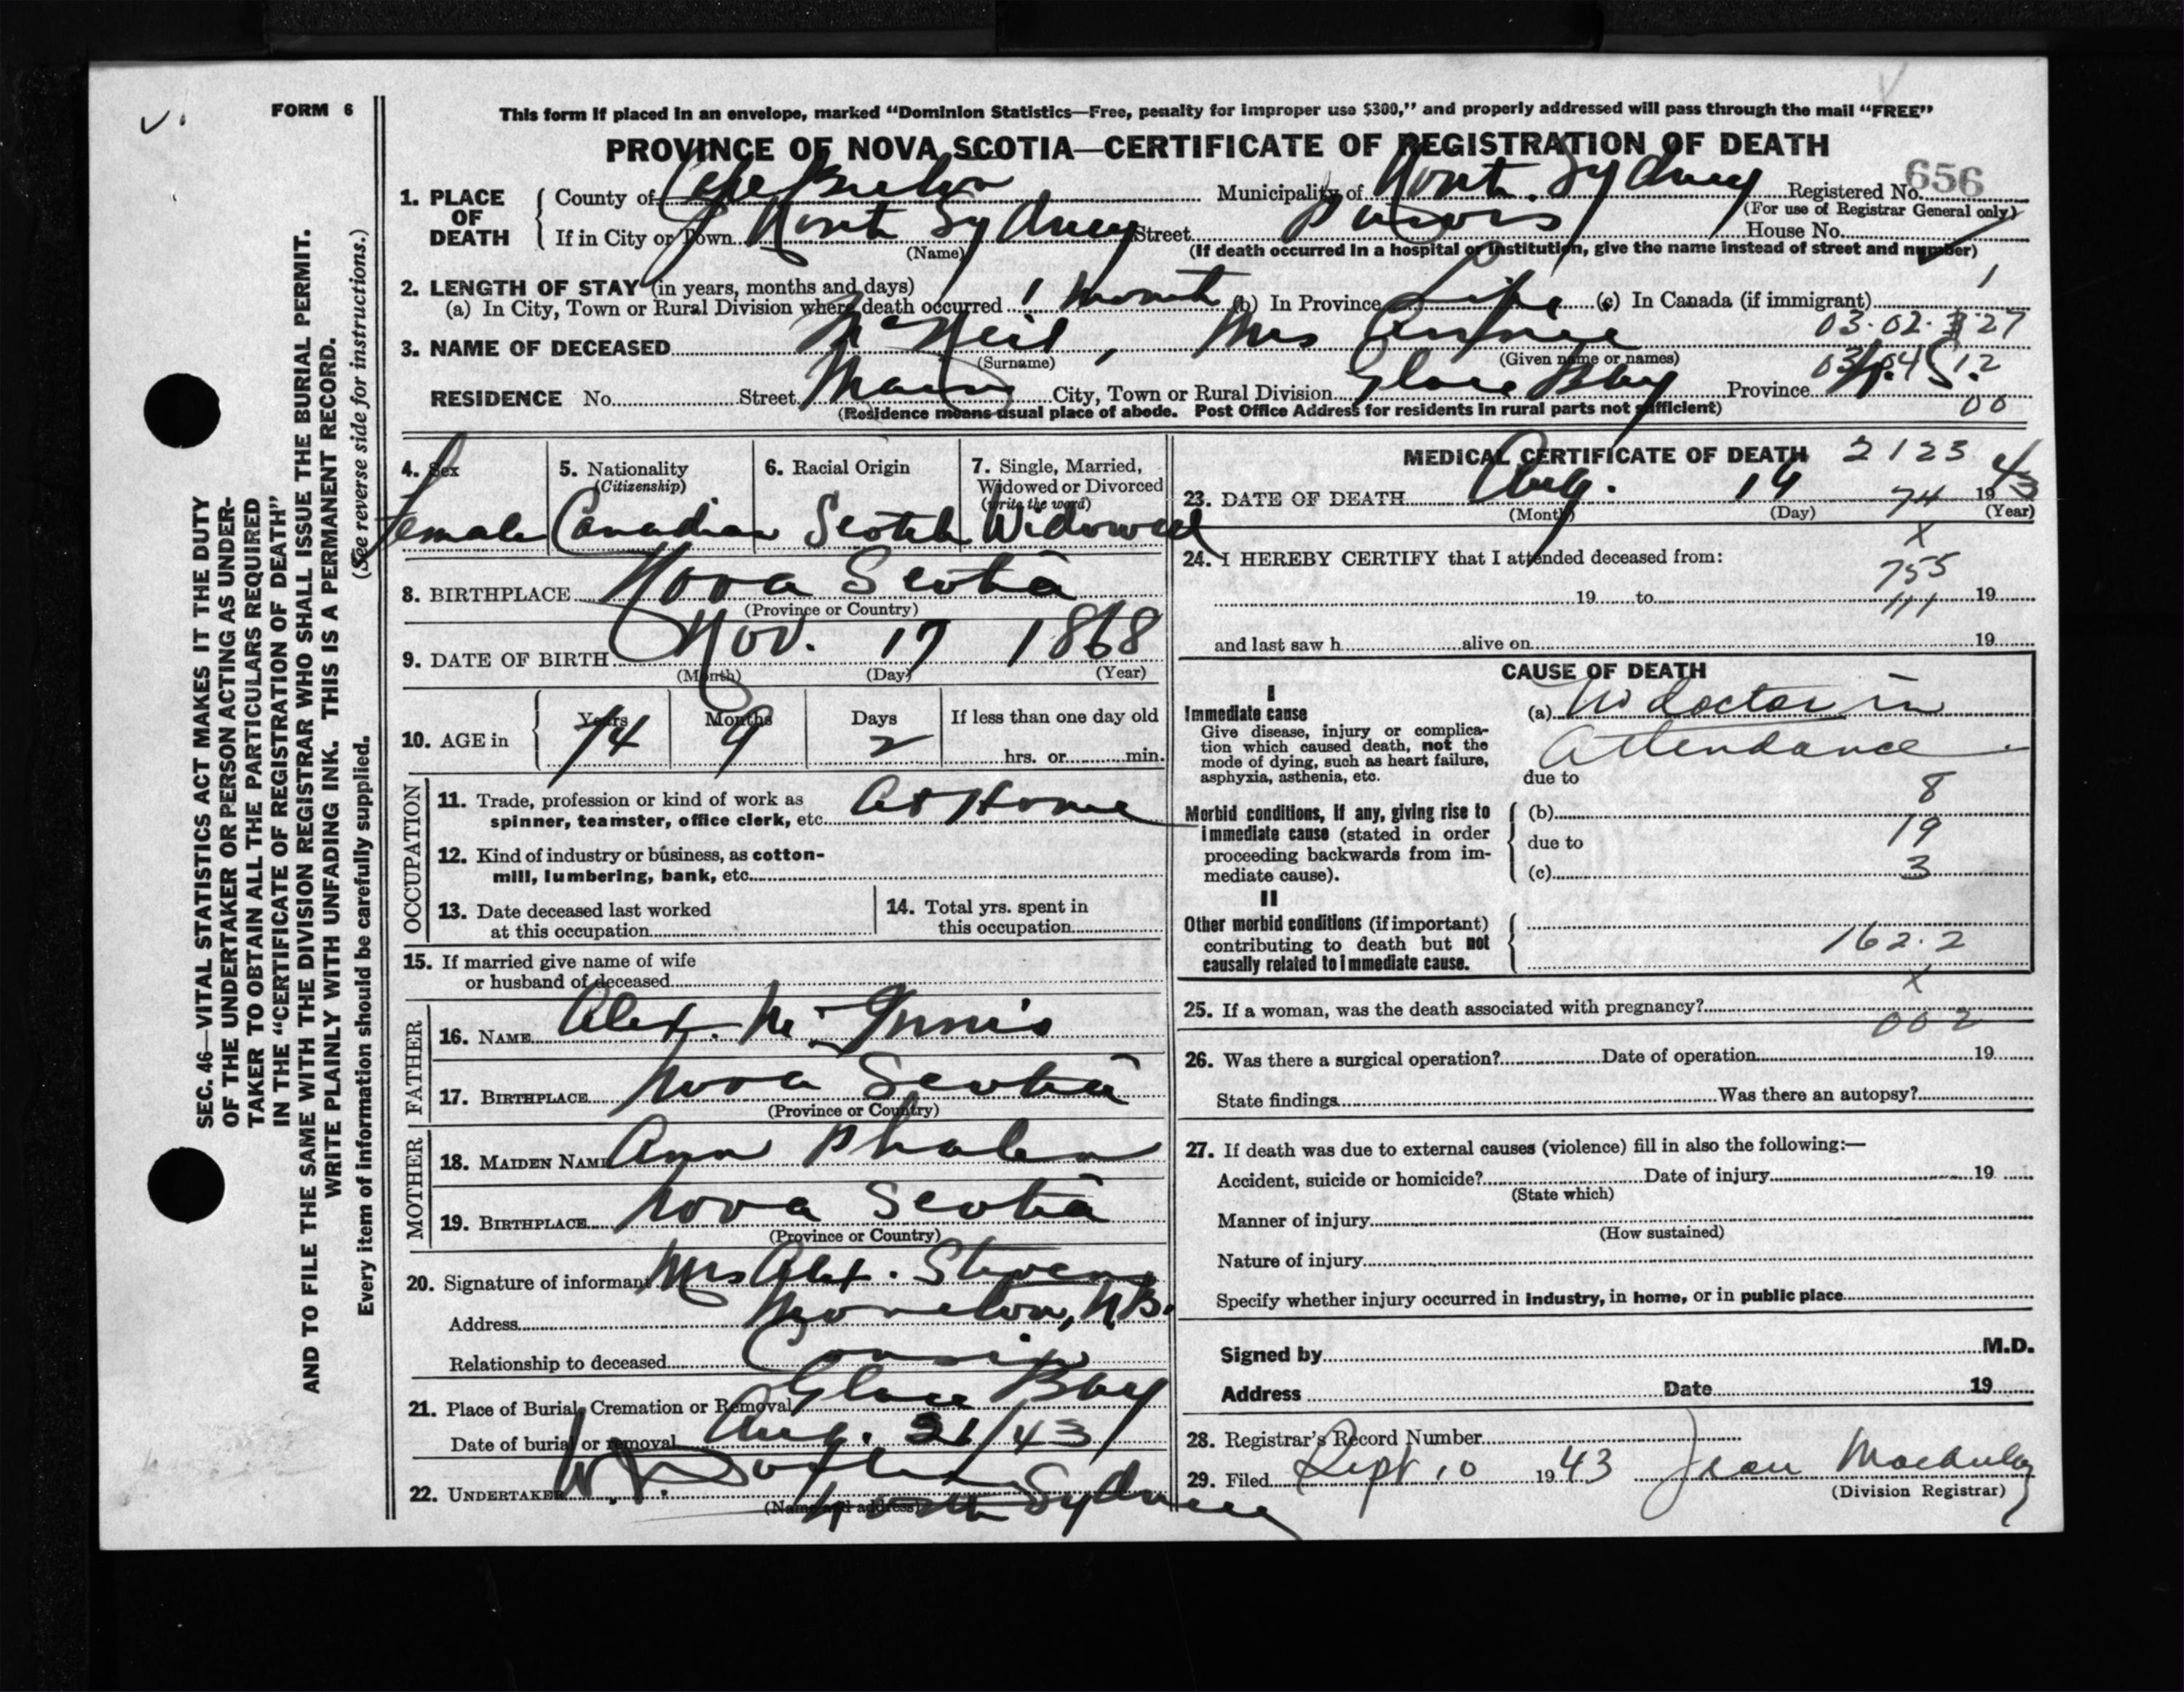 FORM 6
This form if placed in an envelope, marked “Dominion Statistics—Free, penalty for improper use $300,” and properly addressed will pass through the mail “FREE”
PROVINCE OF NOVA SCOTIA—CERTIFICATE OF REGISTRATION OF DEATH
656
1. PLACE OF DEATH County of Cape Breton Municipality of North Sydney Registered No.
(For use of Registrar General only)
If in City or Town North Sydney Street House No.
(Name) (If death occurred in a hospital or institution, give the name instead of street and number)
2. LENGTH OF STAY (in years, months and days) 1
(a) In City, Town or Rural Division where death occurred 1 month (b) In Province Life (c) In Canada (if immigrant)
03.02. 27
3. NAME OF DECEASED McNeil, Mrs Annie
(Surname) (Given name or names)
RESIDENCE No. Street Main City, Town or Rural Division Glace Bay Province N.S.
(Residence means usual place of abode. Post Office Address for residents in rural parts not sufficient) 00
4. Sex 5. Nationality (Citizenship) 6. Racial Origin 7. Single, Married, Widowed or Divorced (write the word)
Female Canadian Scotch Widowed
8. BIRTHPLACE Nova Scotia
(Province or Country)
9. DATE OF BIRTH Nov. 17 1868
(Month) (Day) (Year)
10. AGE in Years Months Days If less than one day old
74 9 2 hrs. or min.
OCCUPATION
11. Trade, profession or kind of work as At Home
spinner, teamster, office clerk, etc.
12. Kind of industry or business, as cotton-
mill, lumbering, bank, etc.
13. Date deceased last worked at this occupation
14. Total yrs. spent in this occupation
15. If married give name of wife
or husband of deceased
FATHER
16. NAME Alex. McInnis
17. BIRTHPLACE Nova Scotia
(Province or Country)
MOTHER
18. MAIDEN NAME Ann Phalen
19. BIRTHPLACE Nova Scotia
(Province or Country)
20. Signature of informant Mrs Alex. Stevens
Address Moncton, N.B.
Relationship to deceased Cousin
21. Place of Burial, Cremation or Removal Glace Bay
Date of burial or removal Aug. 21/43
22. UNDERTAKER
(Name and address) North Sydney
MEDICAL CERTIFICATE OF DEATH 2123
23. DATE OF DEATH Aug. 19 74 1943
(Month) (Day) (Year)
X
24. I HEREBY CERTIFY that I attended deceased from:
755
19 to 111 19
and last saw h alive on 19
CAUSE OF DEATH
I
Immediate cause (a) No doctor in
Give disease, injury or complica-
tion which caused death, not the attendance
mode of dying, such as heart failure,
asphyxia, asthenia, etc. due to
8
Morbid conditions, if any, giving rise to (b)
immediate cause (stated in order 19
proceeding backwards from im- due to
mediate cause). (c) 3
II
Other morbid conditions (if important)
contributing to death but not 162.2
causally related to immediate cause.
X
25. If a woman, was the death associated with pregnancy?
002
26. Was there a surgical operation? Date of operation 19
State findings Was there an autopsy?
27. If death was due to external causes (violence) fill in also the following:—
Accident, suicide or homicide? Date of injury 19
(State which)
Manner of injury
(How sustained)
Nature of injury
Specify whether injury occurred in industry, in home, or in public place
Signed by M.D.
Address Date 19
28. Registrar's Record Number
29. Filed Sept 10 1943 Jean
(Division Registrar)
SEC. 46—VITAL STATISTICS ACT MAKES IT THE DUTY
OF THE UNDERTAKER OR PERSON ACTING AS UNDER-
TAKER TO OBTAIN ALL THE PARTICULARS REQUIRED
IN THE “CERTIFICATE OF REGISTRATION OF DEATH”
AND TO FILE THE SAME WITH THE DIVISION REGISTRAR WHO SHALL ISSUE THE BURIAL PERMIT.
WRITE PLAINLY WITH UNFADING INK. THIS IS A PERMANENT RECORD.
Every item of information should be carefully supplied. (See reverse side for instructions.)